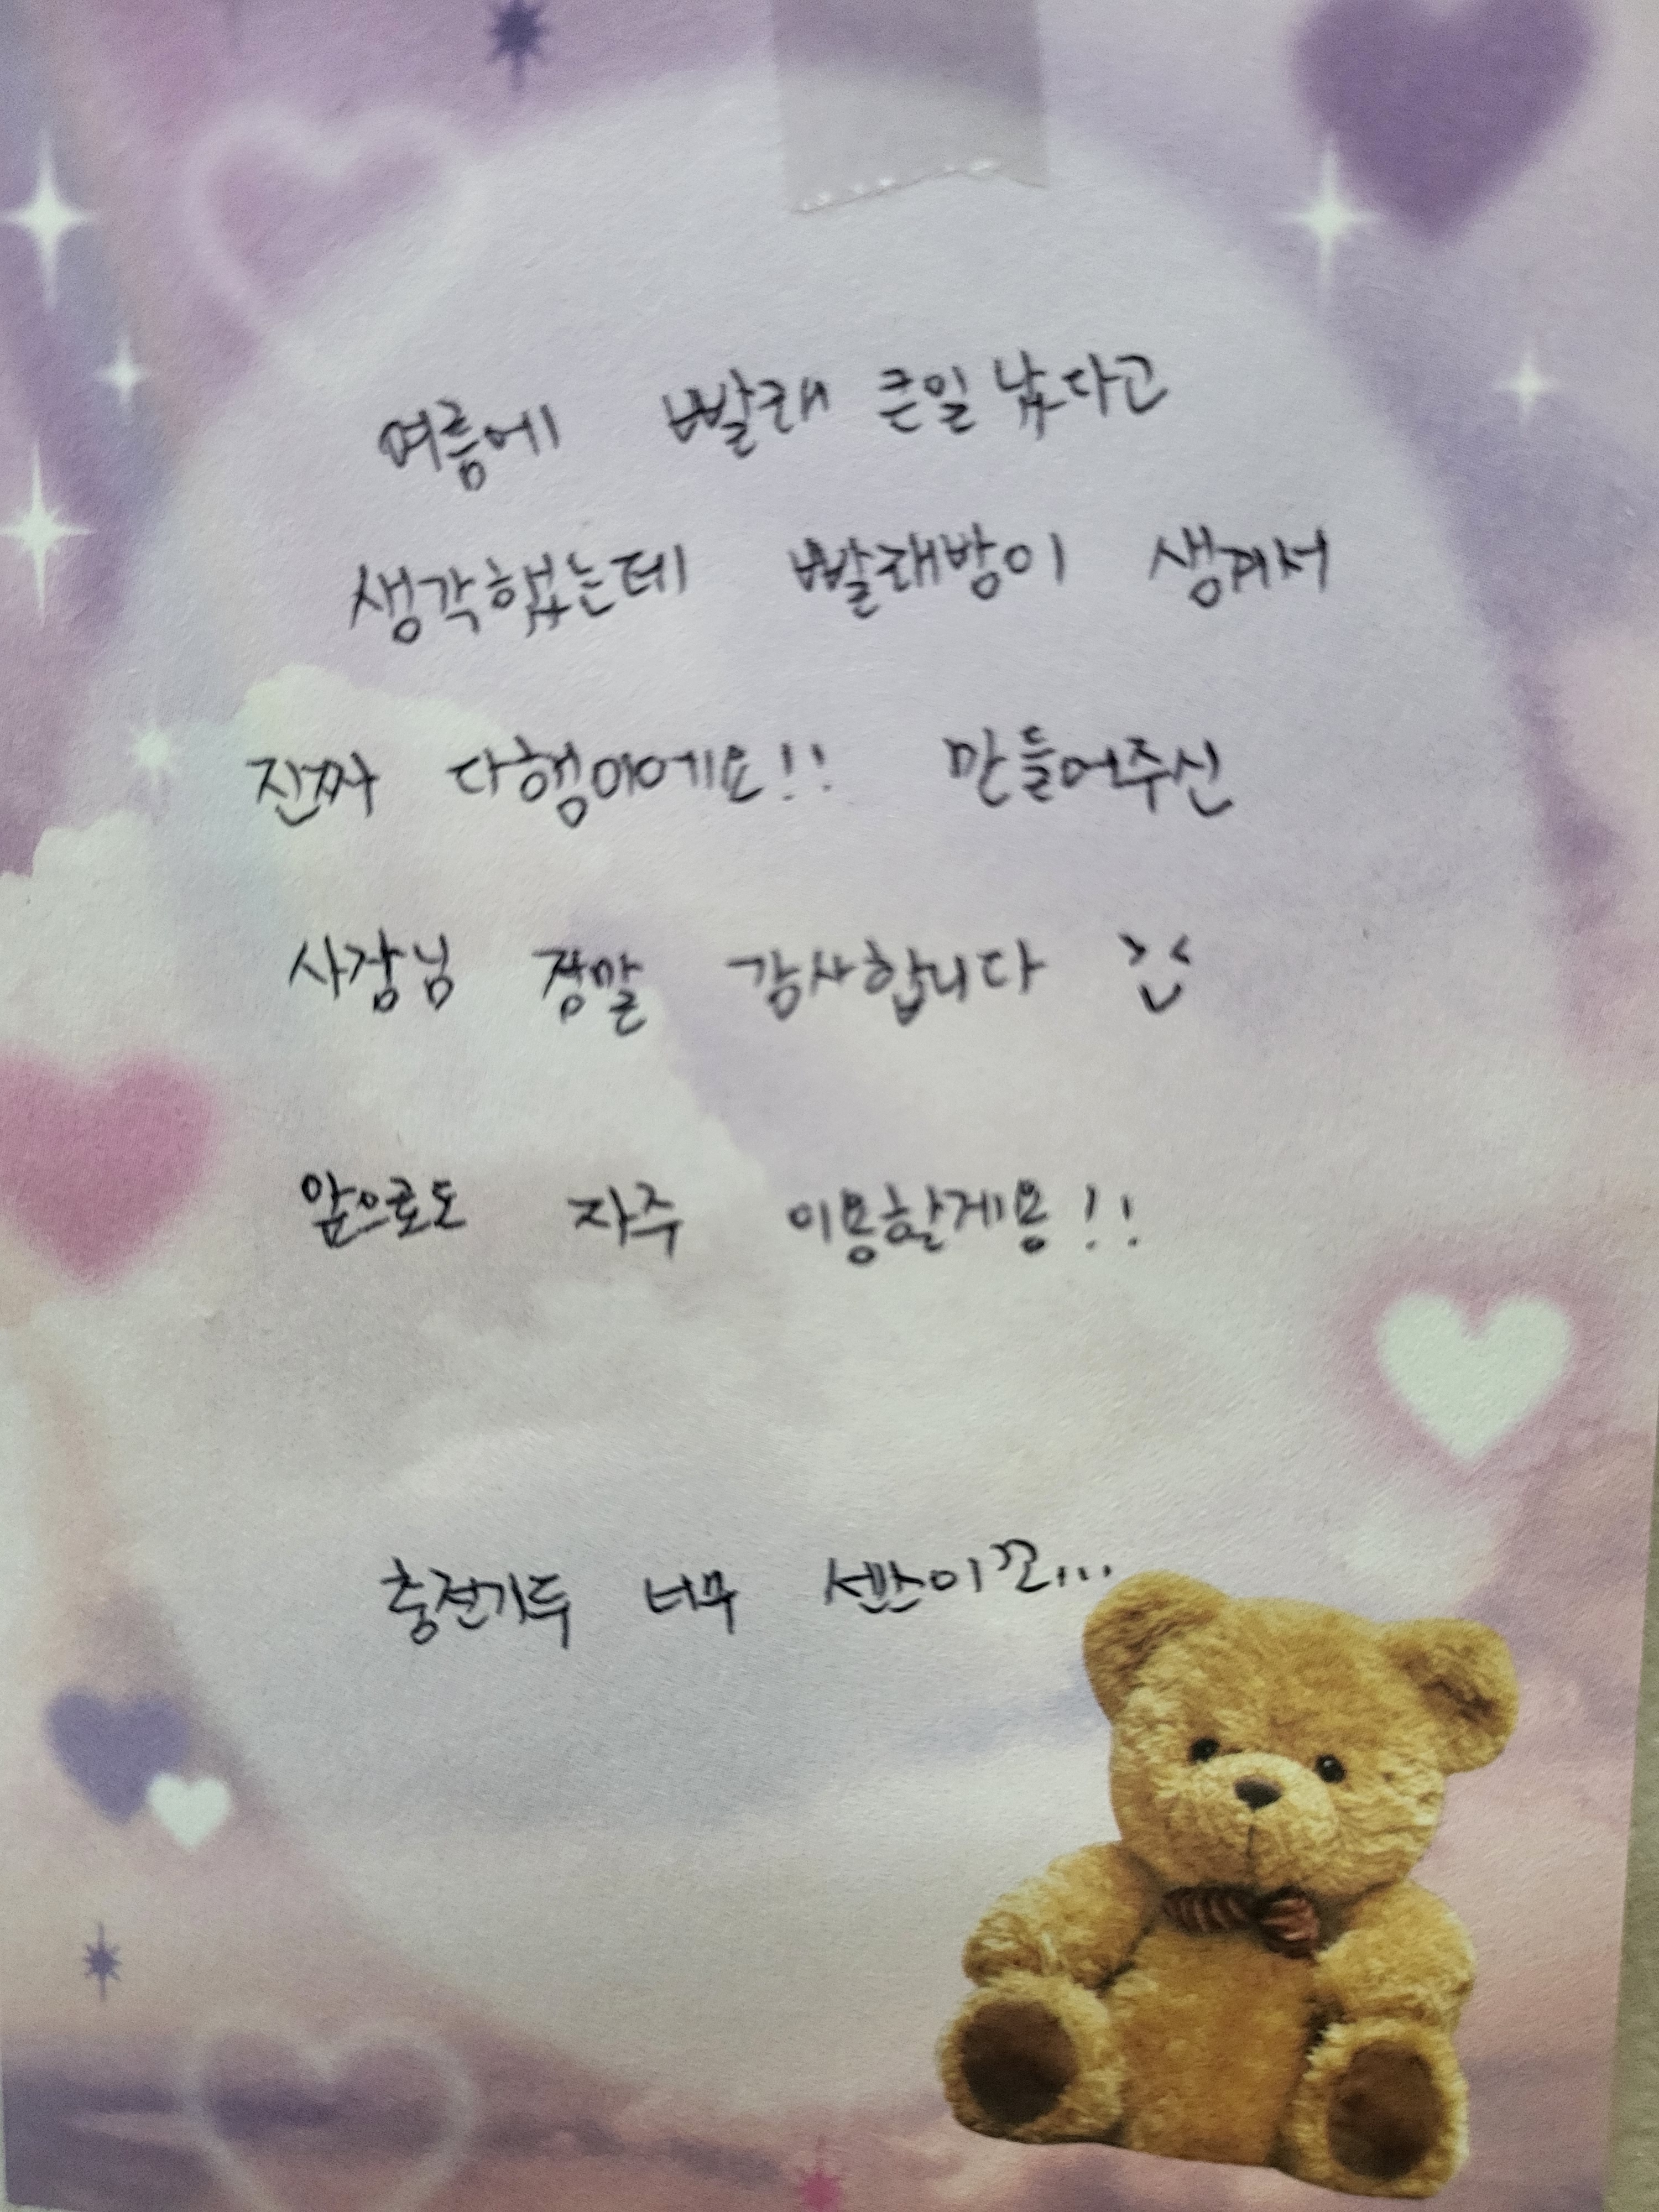 여름에 빨래 큰일 났다고
생각했는데 빨래방이 생겨서
진짜 다행이에요!! 만들어주신
사장님 정말 감사합니다
앞으로도 자주 이용할게용!!
충전기두 너무 센스이꼬...